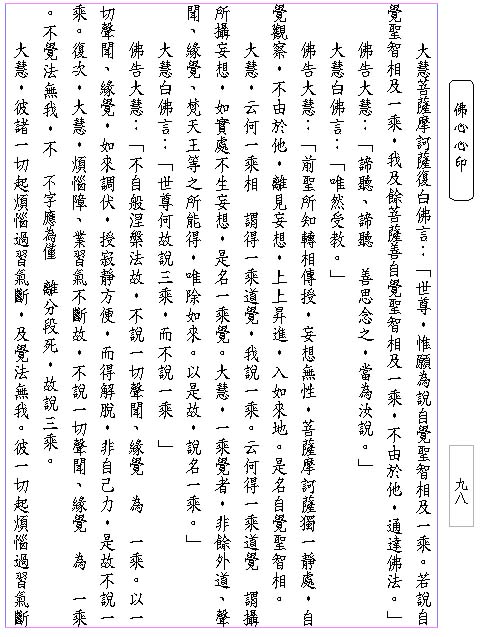 佛心心印
大慧菩薩摩訶薩復白佛言：「世尊，惟願為說自覺聖智相及一乘。若說自
覺聖智相及一乘，我及餘菩薩善自覺聖智相及一乘，不由於他，通達佛法。」
佛告大慧：「諦聽、諦聽 善思念之，當為汝說。」
大慧白佛言：「唯然受教。」
佛告大慧：「前聖所知轉相傳授，妄想無性，菩薩摩訶薩獨一靜處，自
覺觀察，不由於他，離見妄想，上上昇進，入如來地。是名自覺聖智相。
大慧，云何一乘相 謂得一乘道覺，我說一乘。云何得一乘道覺 謂攝
所攝妄想，如實處不生妄想，是名一乘覺。大慧，一乘覺者，非餘外道、聲
聞、緣覺、梵天王等之所能得，唯除如來。以是故，說名一乘。」
大慧白佛言：「世尊何故說三乘，而不說一乘 」
佛告大慧：「不自般涅槃法故，不說一切聲聞、緣覺 為 一乘。以一
切聲聞、緣覺，如來調伏，授寂靜方便，而得解脫，非自己力，是故不說一
乘。復次，大慧，煩惱障、業習氣不斷故，不說一切聲聞、緣覺 為 一乘
。不覺法無我，不 不字應為僅 離分段死，故說三乘。
大慧，彼諸一切起煩惱過習氣斷，及覺法無我。彼一切起煩惱過習氣斷
九八